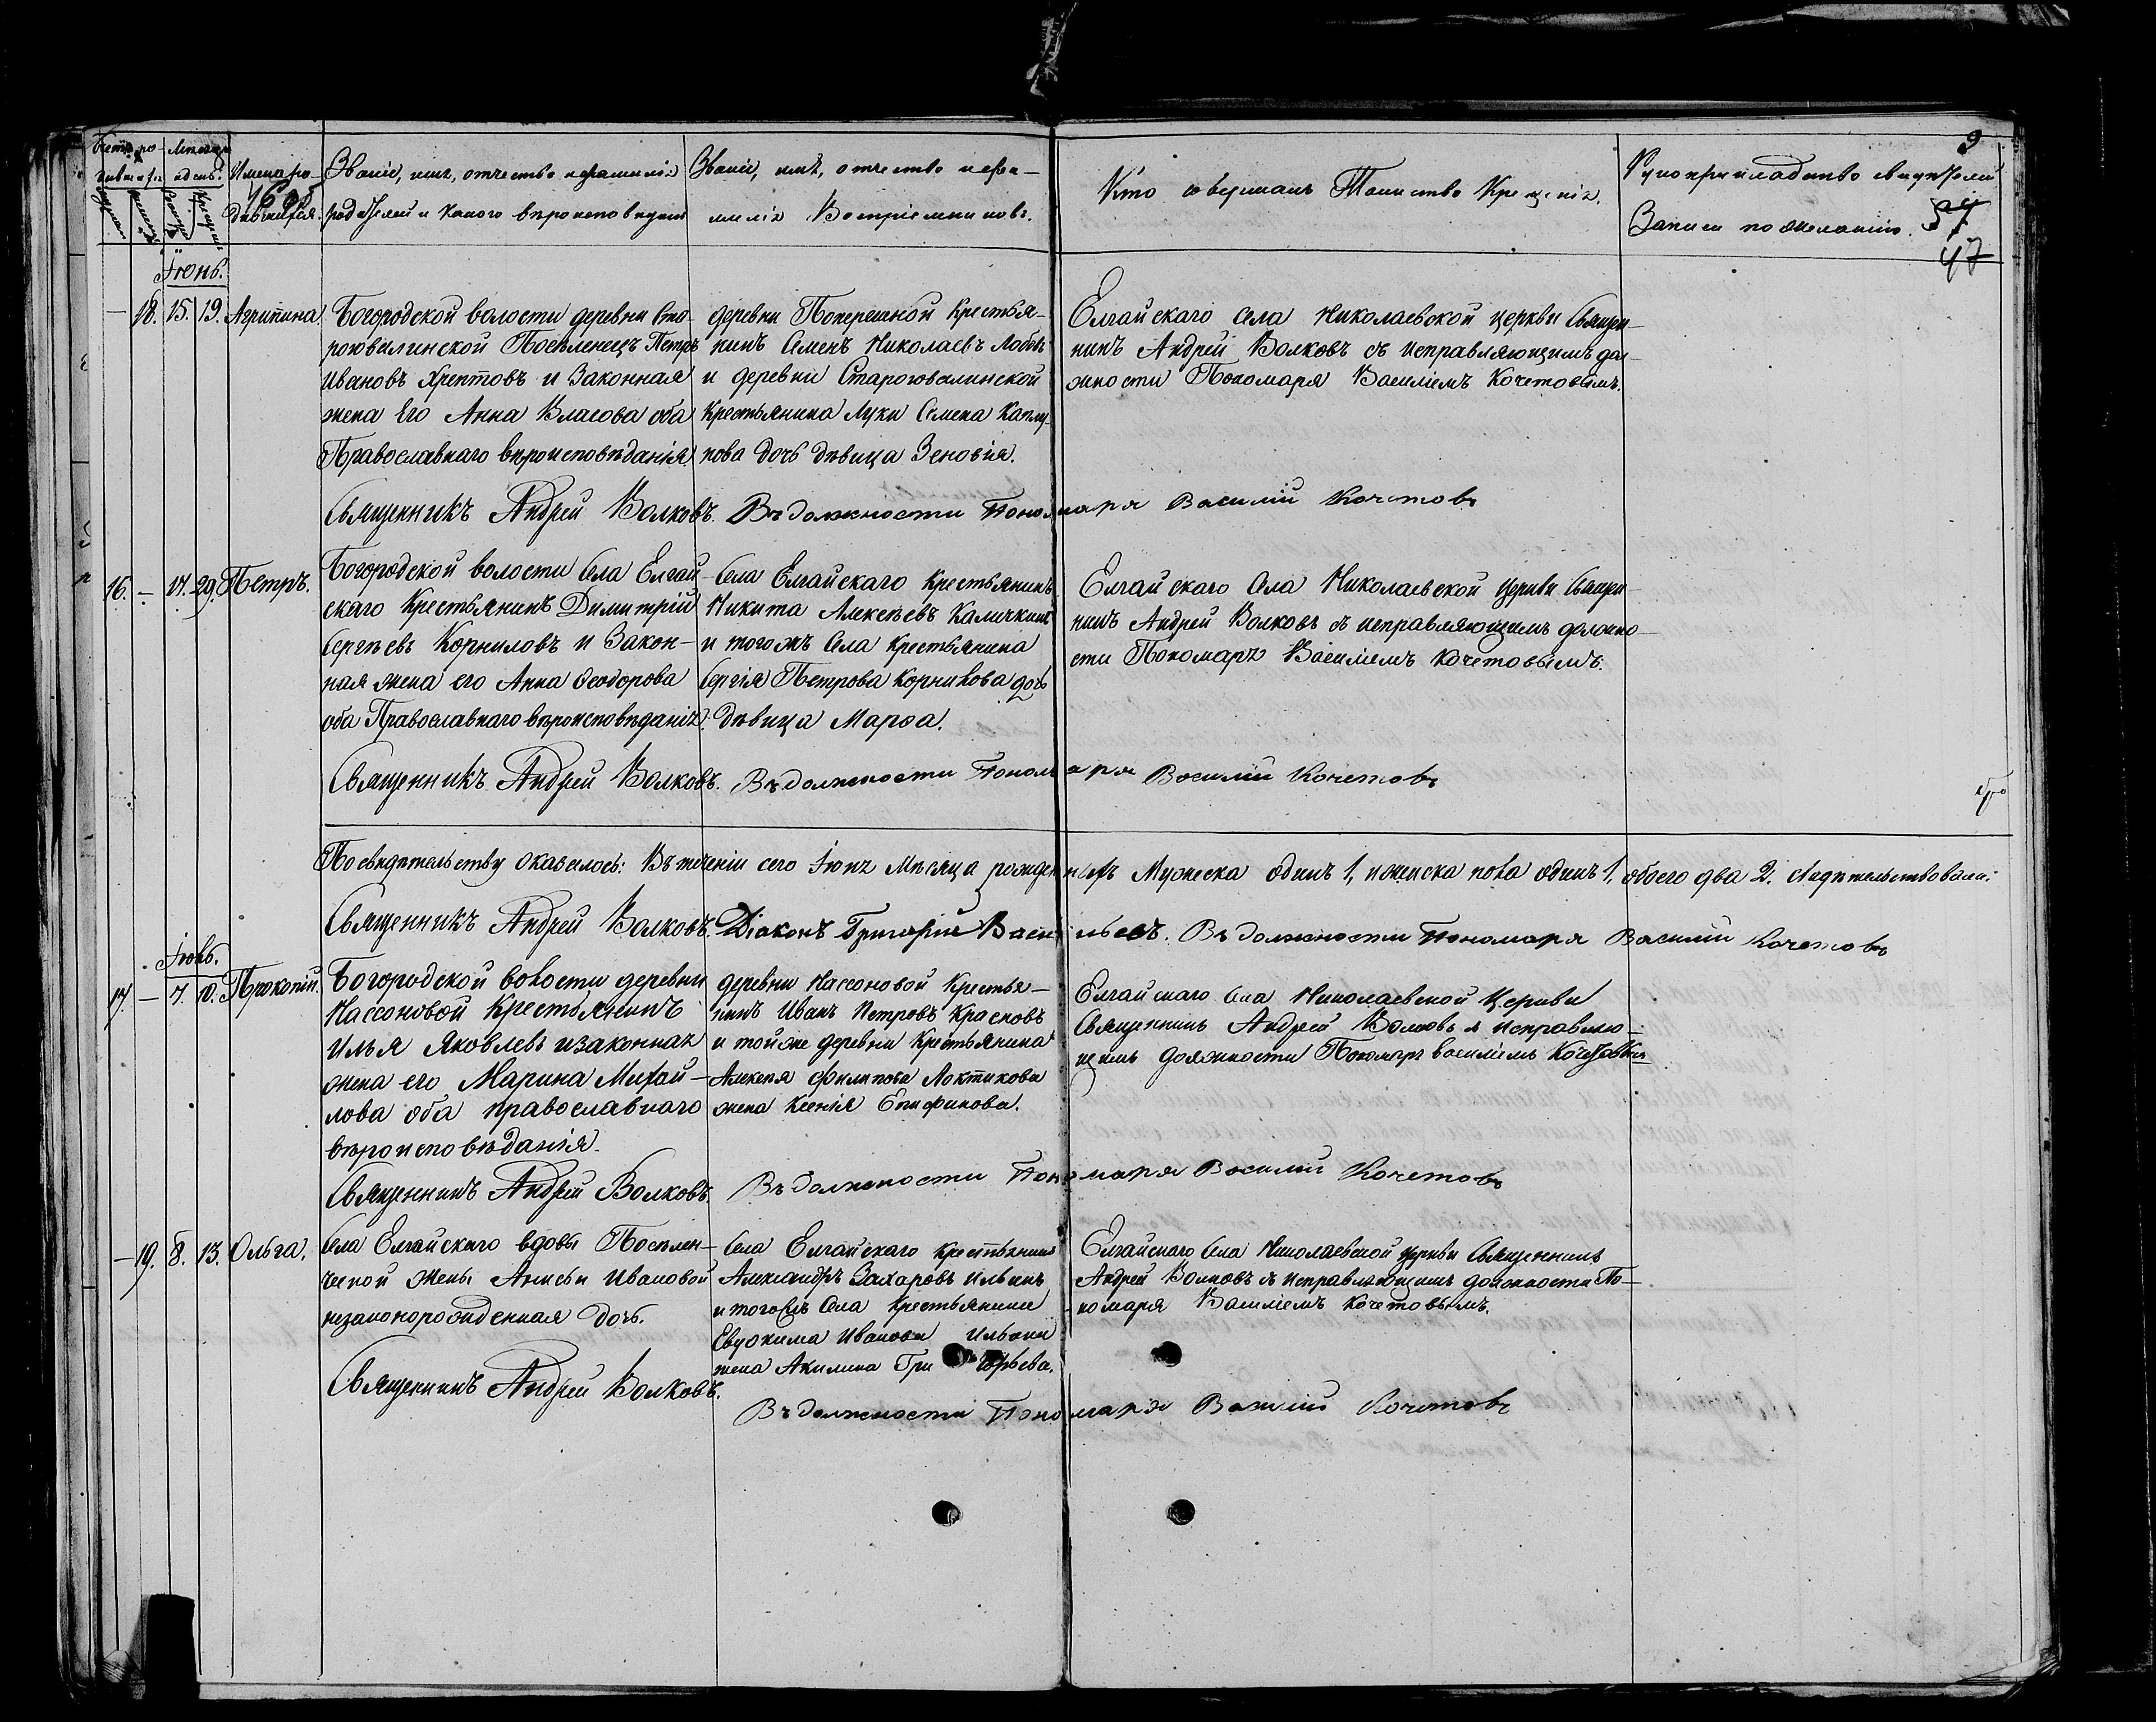 9
Счетъ ро-
дившихся
Мѣсяцъ
и день.
Имена ро-
дившихся.
Званіе, имя, отчество и фамилія
родителей и какого вѣроисповѣданія
Званіе, имя, отчество и фа-
милія Воспріемниковъ.
Кто совершалъ Таинство Крещенія.
Рукоприкладство свидѣтелей
Записи по желанію.
57
47
Іюнь.
— 18. 15. 19. Агрипина
Богородской волости деревни Ста-
роювалинской Поселенецъ Петръ
Ивановъ Хрептовъ и Законная
жена Его Анна Власова оба
Православнаго вѣроисповѣданія.
деревни Поперешной Крестья-
нинъ Семенъ Николаевъ Лобовъ
и деревни Староювалинской
Крестьянина Луки Семена Каплу-
нова дочь дѣвица Зеновія.
Елгайскаго села Николаевской церкви Священ-
никъ Андрей Волковъ съ исправляющимъ дол-
жности Пономаря Василіемъ Кочетовымъ.
Священникъ Андрей Волковъ. Въ должности Пономаря Василій Кочетовъ
16. — 17. 29. Петръ.
Богородской волости Села Елгай-
скаго Крестьянинъ Димитрій
Сергѣевъ Корниловъ и Закон-
ная жена его Анна Ѳеодорова
оба Православнаго вѣроисповѣданія.
Села Елгайскаго Крестьянинъ
Никита Алексѣевъ Каличкинъ
и тогожъ Села Крестьянина
Сергія Петрова Корнилова дочь
дѣвица Марѳа.
Елгайскаго Села Николаевской церкви Священ-
никъ Андрей Волковъ съ исправляющимъ должно-
сти Пономаря Василіемъ Кочетовымъ.
Священникъ Андрей Волковъ. Въ должности Пономаря Василій Кочетовъ
По свидѣтельству оказалось: Въ теченіи сего Іюня Мѣсяца рожденныхъ Мужеска одинъ 1, и женска пола одинъ 1, обоего два 2. Свидѣтельствовали:
Священникъ Андрей Волковъ. Діаконъ Григорій Васильевъ. Въ должности Пономаря Василій Кочетовъ
Іюль.
17. — 7. 10. Прокопій.
Богородской волости деревни
Нассоновой Крестьянинъ
Илья Яковлевъ и законная
жена его Марина Михай-
лова оба православнаго
вѣроисповѣданія.
деревни Нассоновой Крестья-
нинъ Иванъ Петровъ Красновъ
и тойже деревни Крестьянина
Алексѣя Филипова Локтикова
жена Ксенія Епифанова.
Елгайскаго Села Николаевской Церкви
Священникъ Андрей Волковъ съ исправляю-
щимъ должности Пономаря Василіемъ Кочетовымъ
Священникъ Андрей Волковъ. Въ должности Пономаря Василій Кочетовъ
— 19. 8. 13. Ольга.
Села Елгайскаго вдовы Поселен-
ческой жены Анисьи Ивановой
незаконорожденная дочь.
Села Елгайскаго Крестьянинъ
Александръ Захаровъ Ильинъ
и тогожъ Села Крестьянина
Евдокима Иванова Ильина
жена Акилина Григорьева.
Елгайскаго Села Николаевской церкви Священникъ
Андрей Волковъ съ исправляющимъ должности По-
номаря Василіемъ Кочетовымъ.
Священникъ Андрей Волковъ.
Въ должности Пономаря Василій Кочетовъ